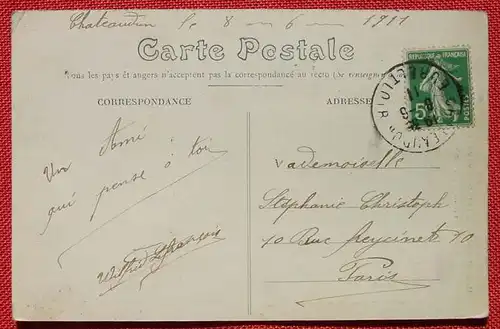 Chateaudun le 8 6 1911
Carte Postale
Tous les pays étrangers n'acceptent pas la correspondance au recto (Se renseigner
CORRESPONDANCE
ADRESSE
REPUBLIQUE FRANÇAISE
5
POSTES
EURE-ET-LOIR
Un Ami
qui pense à toi
Wilfrid
Mademoiselle
Stéphanie Christoph
10 Rue Freycinet 10
Paris